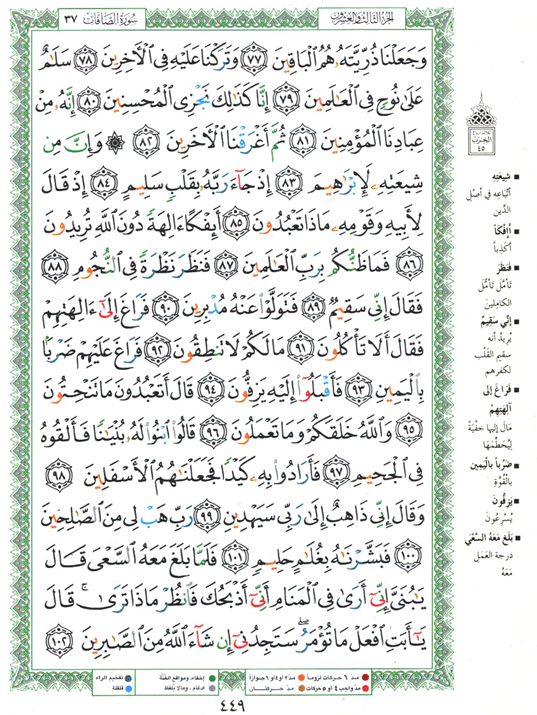 الجزء الثالث والعشرون
سورة الصافات ٣٧
وَجَعَلْنَا ذُرِّيَّتَهُۥ هُمُ ٱلْبَاقِينَ ٧٧ وَتَرَكْنَا عَلَيْهِ فِى ٱلْـَٔاخِرِينَ ٧٨ سَلَـٰمٌ
عَلَىٰ نُوحٍ فِى ٱلْعَـٰلَمِينَ ٧٩ إِنَّا كَذَٰلِكَ نَجْزِى ٱلْمُحْسِنِينَ ٨٠ إِنَّهُۥ مِنْ
عِبَادِنَا ٱلْمُؤْمِنِينَ ٨١ ثُمَّ أَغْرَقْنَا ٱلْـَٔاخَرِينَ ٨٢ ۞ وَإِنَّ مِن
شِيعَتِهِۦ لَإِبْرَٰهِيمَ ٨٣ إِذْ جَآءَ رَبَّهُۥ بِقَلْبٍ سَلِيمٍ ٨٤ إِذْ قَالَ
لِأَبِيهِ وَقَوْمِهِۦ مَاذَا تَعْبُدُونَ ٨٥ أَئِفْكًا ءَالِهَةً دُونَ ٱللَّهِ تُرِيدُونَ
٨٦ فَمَا ظَنُّكُم بِرَبِّ ٱلْعَـٰلَمِينَ ٨٧ فَنَظَرَ نَظْرَةً فِى ٱلنُّجُومِ ٨٨
فَقَالَ إِنِّى سَقِيمٌ ٨٩ فَتَوَلَّوْا۟ عَنْهُ مُدْبِرِينَ ٩٠ فَرَاغَ إِلَىٰٓ ءَالِهَتِهِمْ
فَقَالَ أَلَا تَأْكُلُونَ ٩١ مَا لَكُمْ لَا تَنطِقُونَ ٩٢ فَرَاغَ عَلَيْهِمْ ضَرْبًۢا
بِٱلْيَمِينِ ٩٣ فَأَقْبَلُوٓا۟ إِلَيْهِ يَزِفُّونَ ٩٤ قَالَ أَتَعْبُدُونَ مَا تَنْحِتُونَ
٩٥ وَٱللَّهُ خَلَقَكُمْ وَمَا تَعْمَلُونَ ٩٦ قَالُوا۟ ٱبْنُوا۟ لَهُۥ بُنْيَـٰنًا فَأَلْقُوهُ
فِى ٱلْجَحِيمِ ٩٧ فَأَرَادُوا۟ بِهِۦ كَيْدًا فَجَعَلْنَـٰهُمُ ٱلْأَسْفَلِينَ ٩٨
وَقَالَ إِنِّى ذَاهِبٌ إِلَىٰ رَبِّى سَيَهْدِينِ ٩٩ رَبِّ هَبْ لِى مِنَ ٱلصَّـٰلِحِينَ
١٠٠ فَبَشَّرْنَـٰهُ بِغُلَـٰمٍ حَلِيمٍ ١٠١ فَلَمَّا بَلَغَ مَعَهُ ٱلسَّعْىَ قَالَ
يَـٰبُنَىَّ إِنِّىٓ أَرَىٰ فِى ٱلْمَنَامِ أَنِّىٓ أَذْبَحُكَ فَٱنظُرْ مَاذَا تَرَىٰ ۚ قَالَ
يَـٰٓأَبَتِ ٱفْعَلْ مَا تُؤْمَرُ ۖ سَتَجِدُنِىٓ إِن شَآءَ ٱللَّهُ مِنَ ٱلصَّـٰبِرِينَ ١٠٢
الحزب
٤٥
■ شيعته
أتباعه في أصل
الدين
■ أئفكاً
أكذباً
■ فنظر
تأمل تأمل
الكاملين
■ إني سقيم
يريد أنه
سقيم القلب
لكفرهم
■ فراغ إلى
آلهتهم
مال إليها خفية
ليحطمها
■ ضرباً باليمين
بالقوة
■ يزفون
يسرعون
■ بلغ معه السعي
درجة العمل
معه
مد ٦ حركات لزوماً
مد ٢ أو ٤ أو ٦ جوازاً
إخفاء، ومواقع الغنة
تفخيم الراء
مد واجب ٤ أو ٥ حركات
مد حركتان
ادغام، وما لا يلفظ
قلقلة
٤٤٩